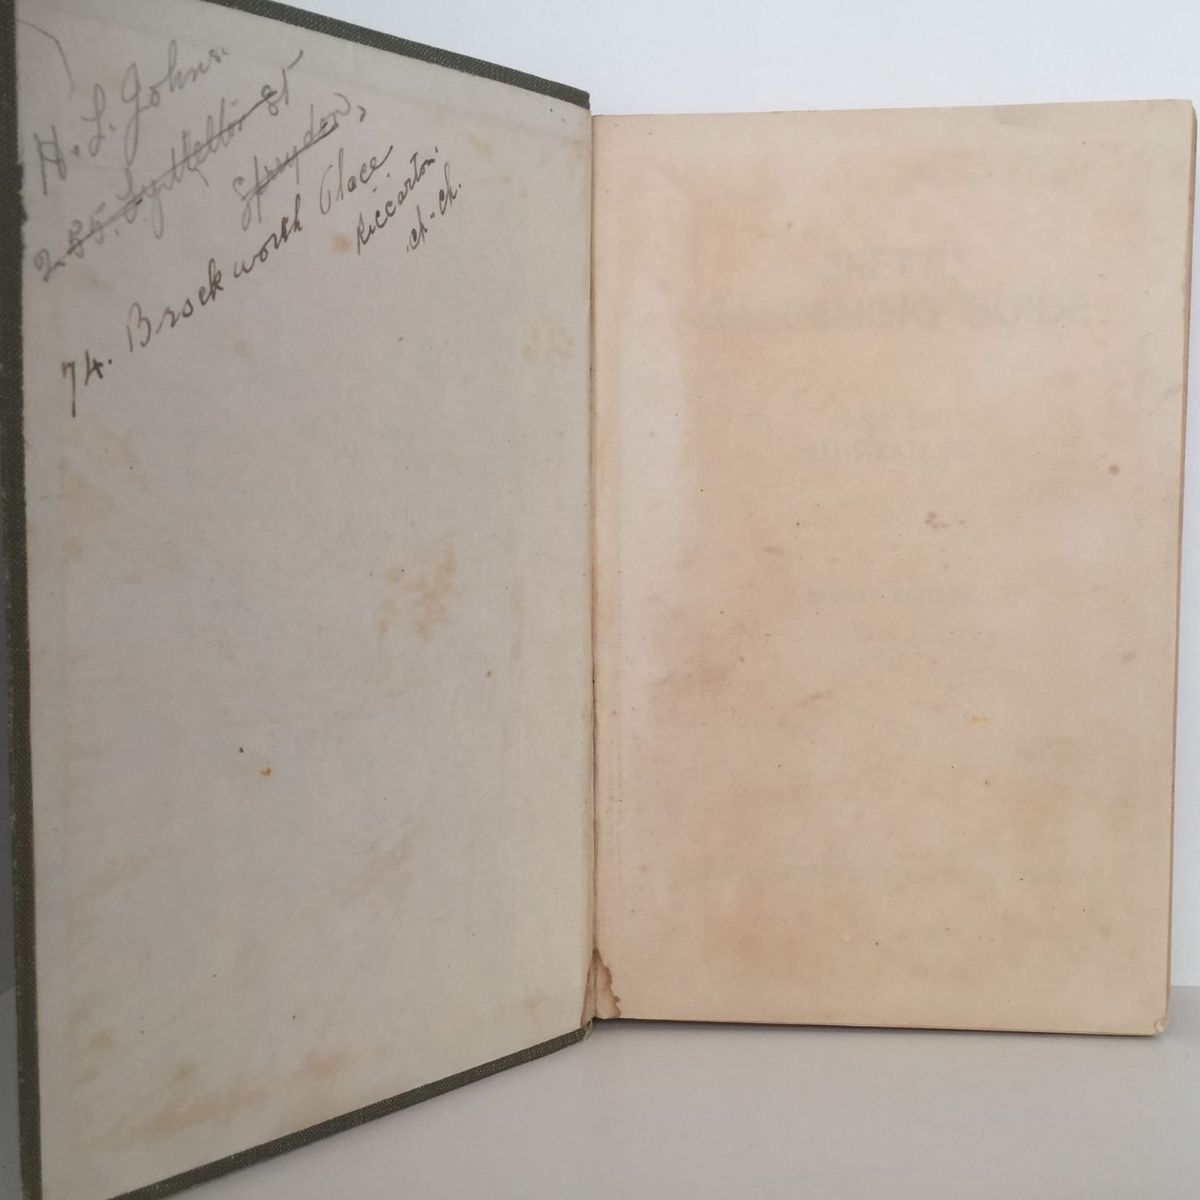 H. L. Johns.
285. Lyttelton St
Spreydon,
74. Brockworth Place
Riccarton.
Ch-Ch.